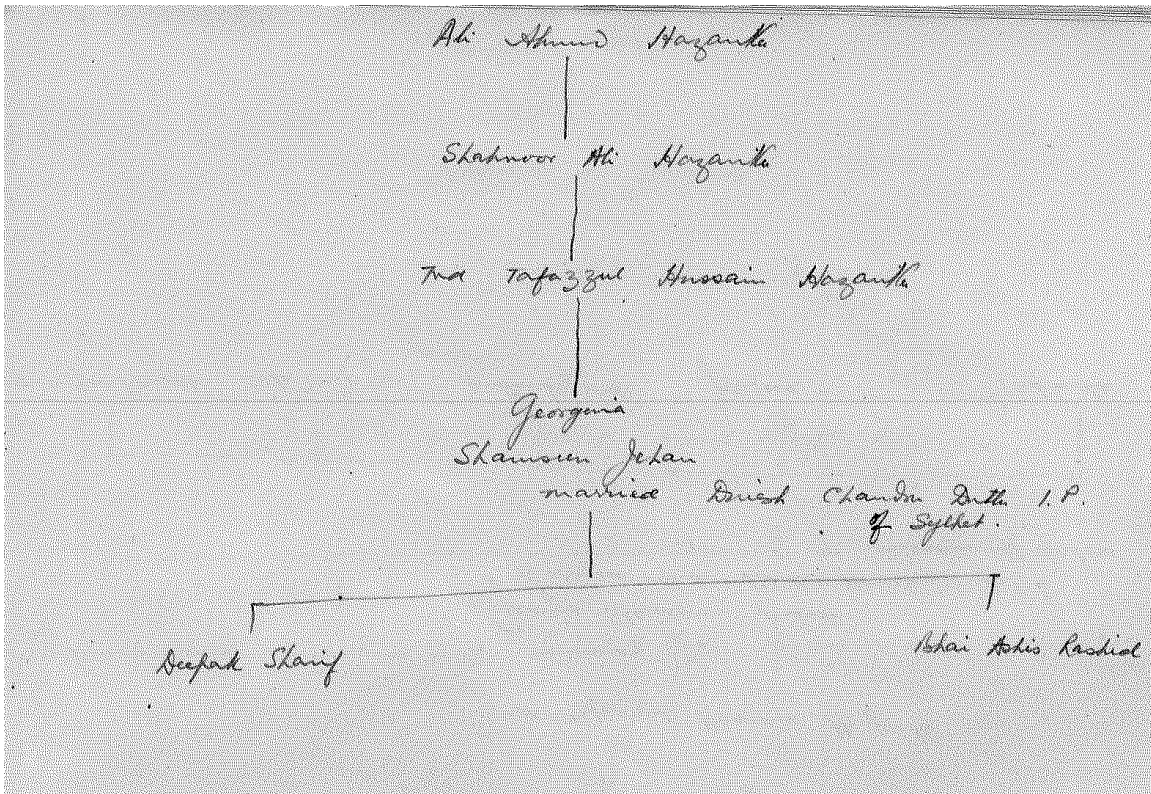 Ali Ahmed Hazarika
Shahnoor Ali Hazarika
Md Tafazzul Hussain Hazarika
Georgina
Shamsun Jehan
married Dinesh Chandra Dutta I.P.
of Sylhet.
Deepak Sharif
Bhai Ashis Rashid